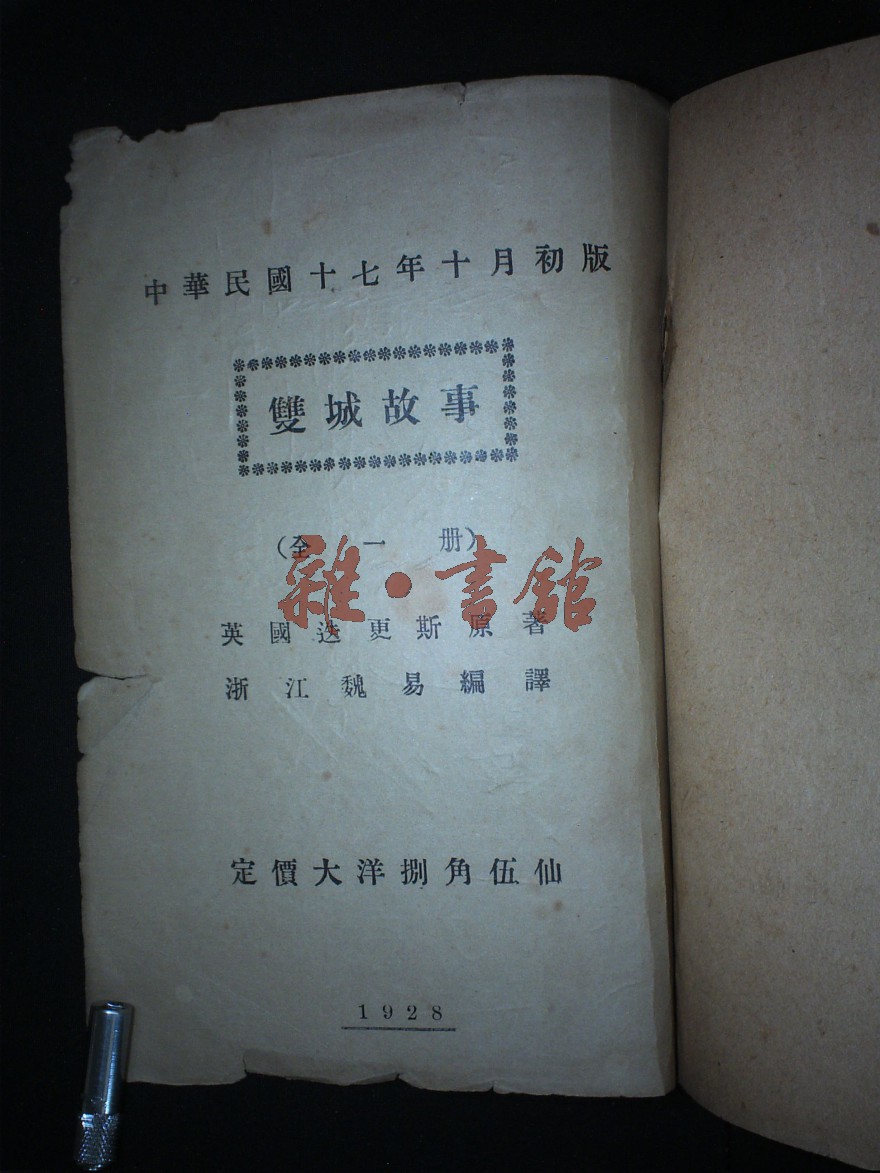 中華民國十七年十月初版
雙城故事
(全一册)
雜·書館
英國迭更斯原著
浙江魏易編譯
定價大洋捌角伍仙
1928